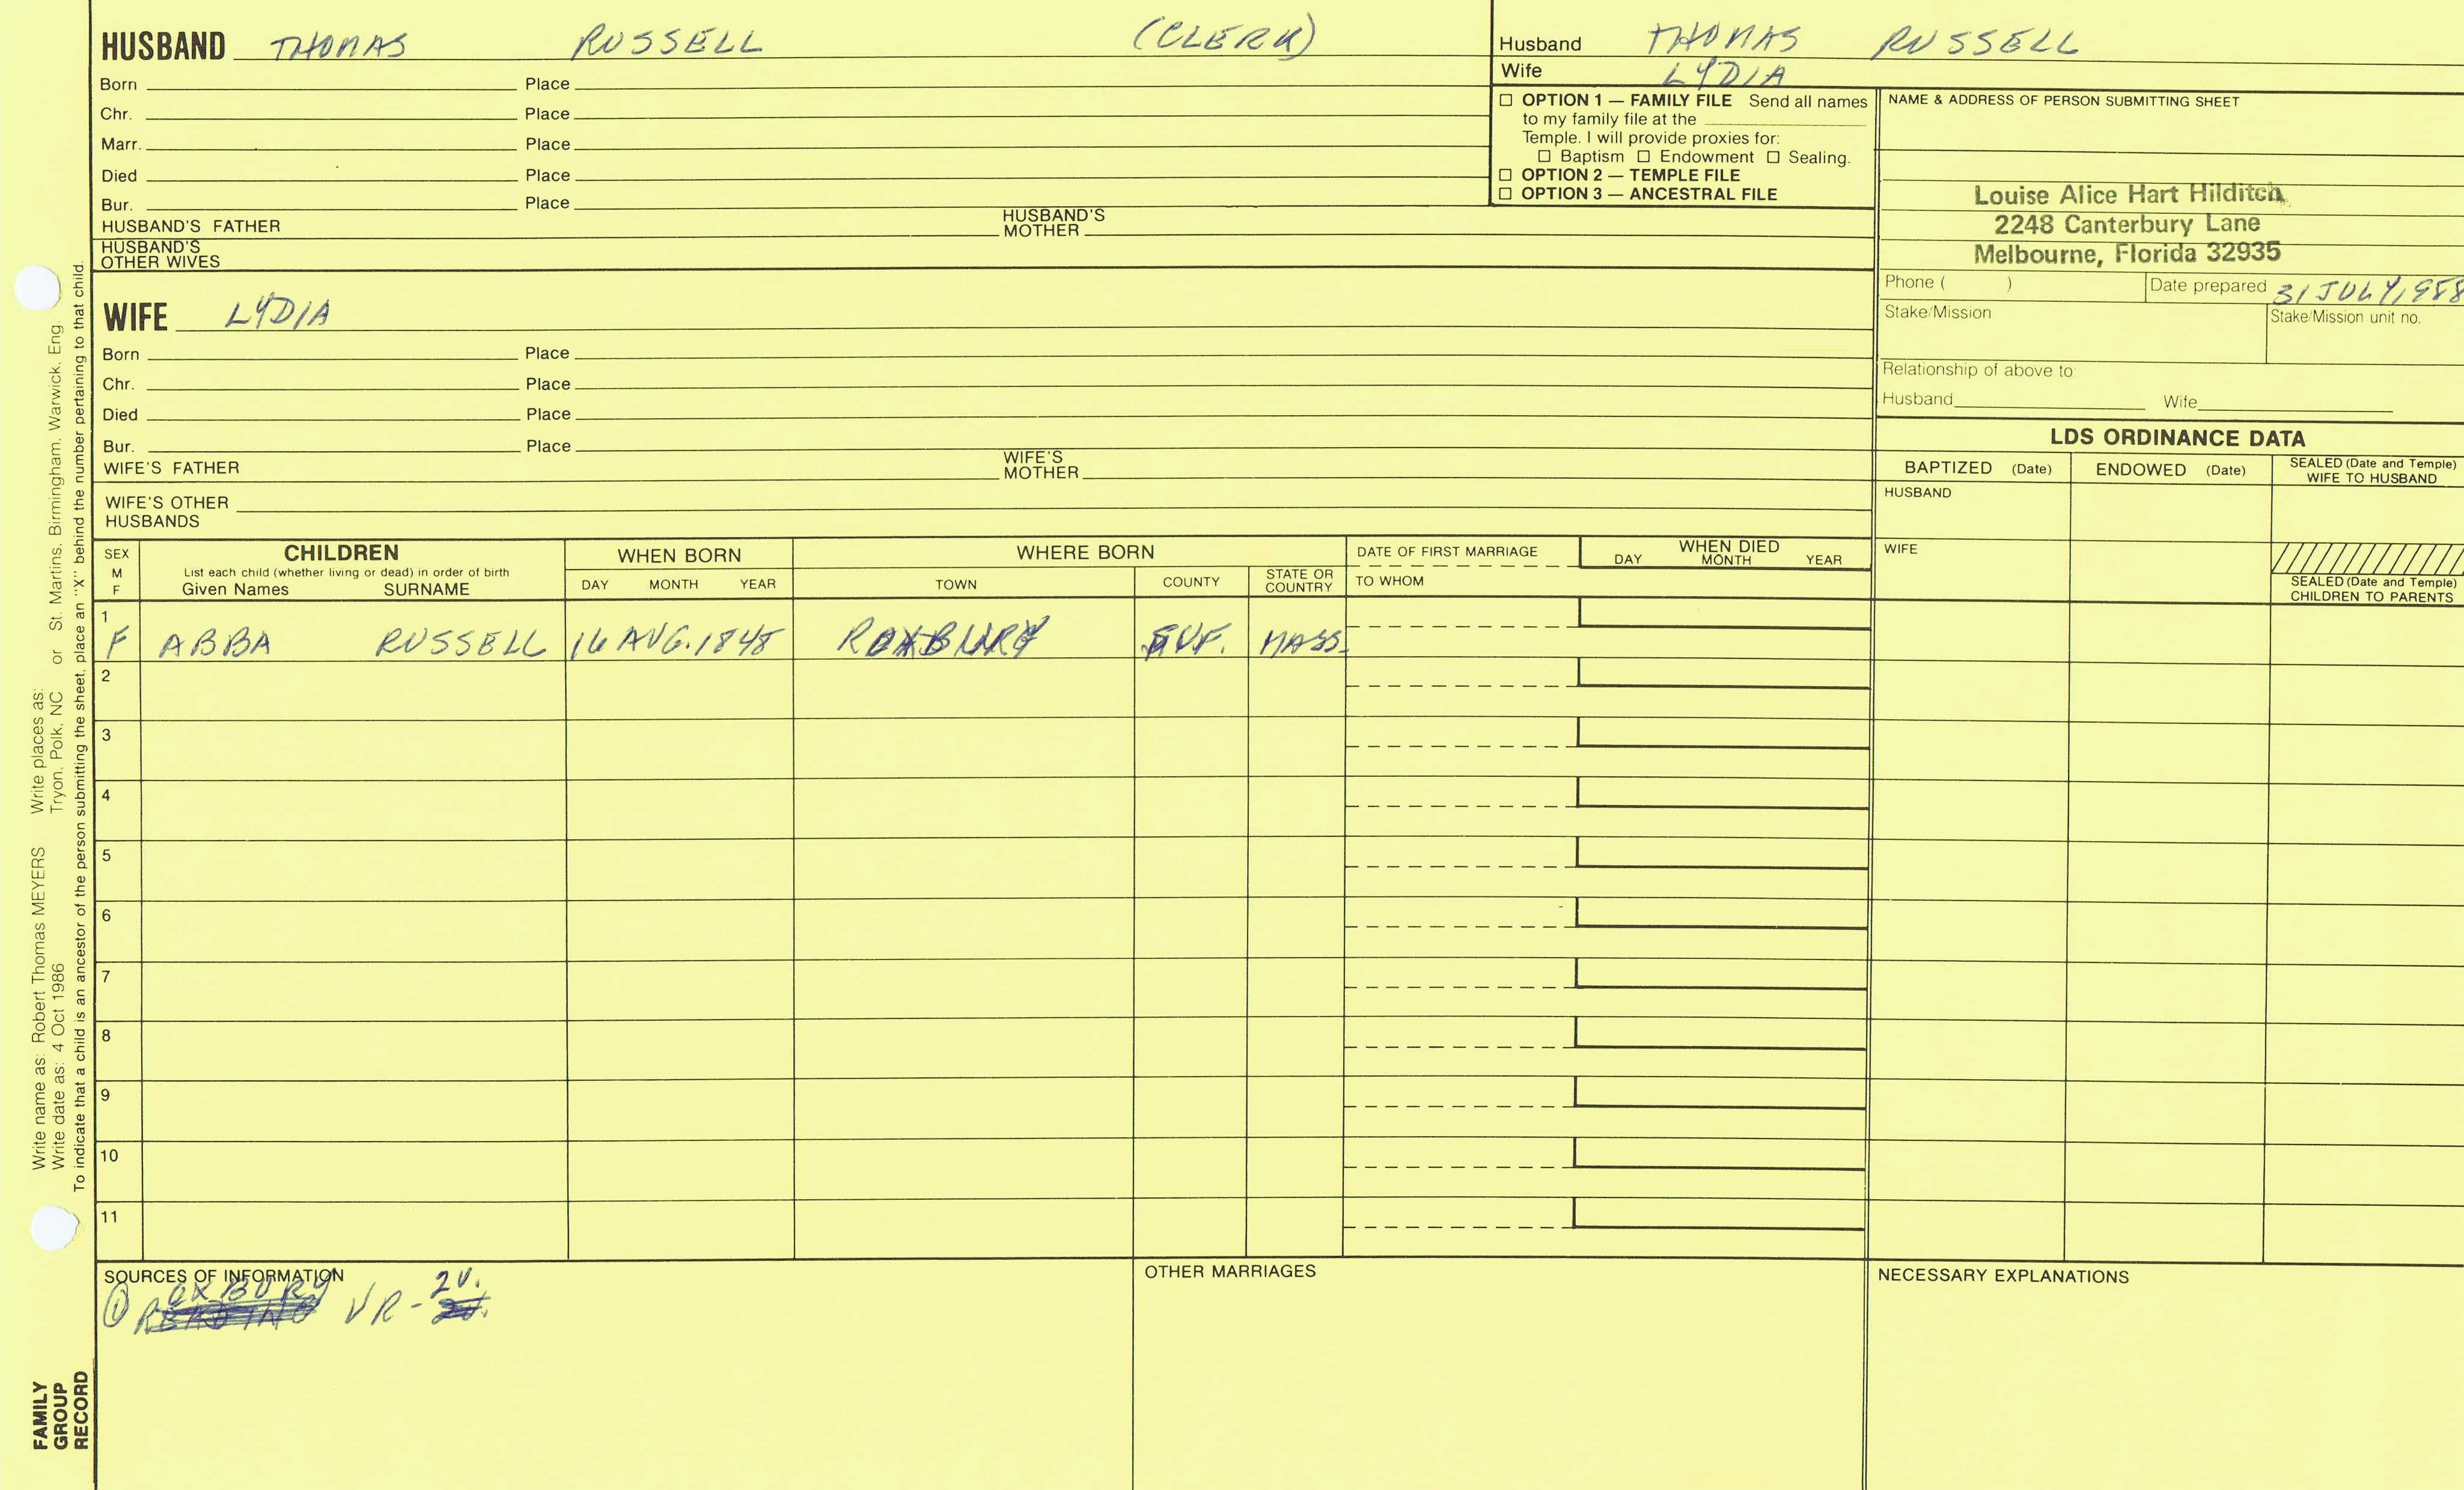 HUSBAND THOMAS RUSSELL (CLERK)
Born Place
Chr. Place
Marr. Place
Died Place
Bur. Place
HUSBAND'S FATHER HUSBAND'S MOTHER
HUSBAND'S OTHER WIVES
WIFE LYDIA
Born Place
Chr. Place
Died Place
Bur. Place
WIFE'S FATHER WIFE'S MOTHER
WIFE'S OTHER HUSBANDS
Husband THOMAS RUSSELL
Wife LYDIA
☐ OPTION 1 — FAMILY FILE Send all names
to my family file at the
Temple. I will provide proxies for:
☐ Baptism ☐ Endowment ☐ Sealing.
☐ OPTION 2 — TEMPLE FILE
☐ OPTION 3 — ANCESTRAL FILE
NAME & ADDRESS OF PERSON SUBMITTING SHEET
Louise Alice Hart Hilditch
2248 Canterbury Lane
Melbourne, Florida 32935
Phone ( ) Date prepared 31 JULY, 1988
Stake/Mission Stake/Mission unit no.
Relationship of above to:
Husband Wife
LDS ORDINANCE DATA
BAPTIZED (Date) ENDOWED (Date) SEALED (Date and Temple) WIFE TO HUSBAND
HUSBAND
WIFE
SEALED (Date and Temple) CHILDREN TO PARENTS
SEX M F
CHILDREN
List each child (whether living or dead) in order of birth
Given Names SURNAME
WHEN BORN
DAY MONTH YEAR
WHERE BORN
TOWN COUNTY STATE OR COUNTRY
DATE OF FIRST MARRIAGE
TO WHOM
WHEN DIED
DAY MONTH YEAR
1
F ABBA RUSSELL 16 AUG. 1848 ROXBURY SUF. MASS.
2
3
4
5
6
7
8
9
10
11
SOURCES OF INFORMATION
OXBURY 2V.
① R VR-
OTHER MARRIAGES
NECESSARY EXPLANATIONS
Write name as: Robert Thomas MEYERS Write places as:
Write date as: 4 Oct 1986 Tryon, Polk, NC or St. Martins, Birmingham, Warwick, Eng.
To indicate that a child is an ancestor of the person submitting the sheet, place an "X" behind the number pertaining to that child.
FAMILY
GROUP
RECORD